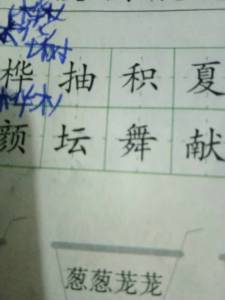 桦 抽 积 夏
颜 坛 舞 献
葱葱茏茏